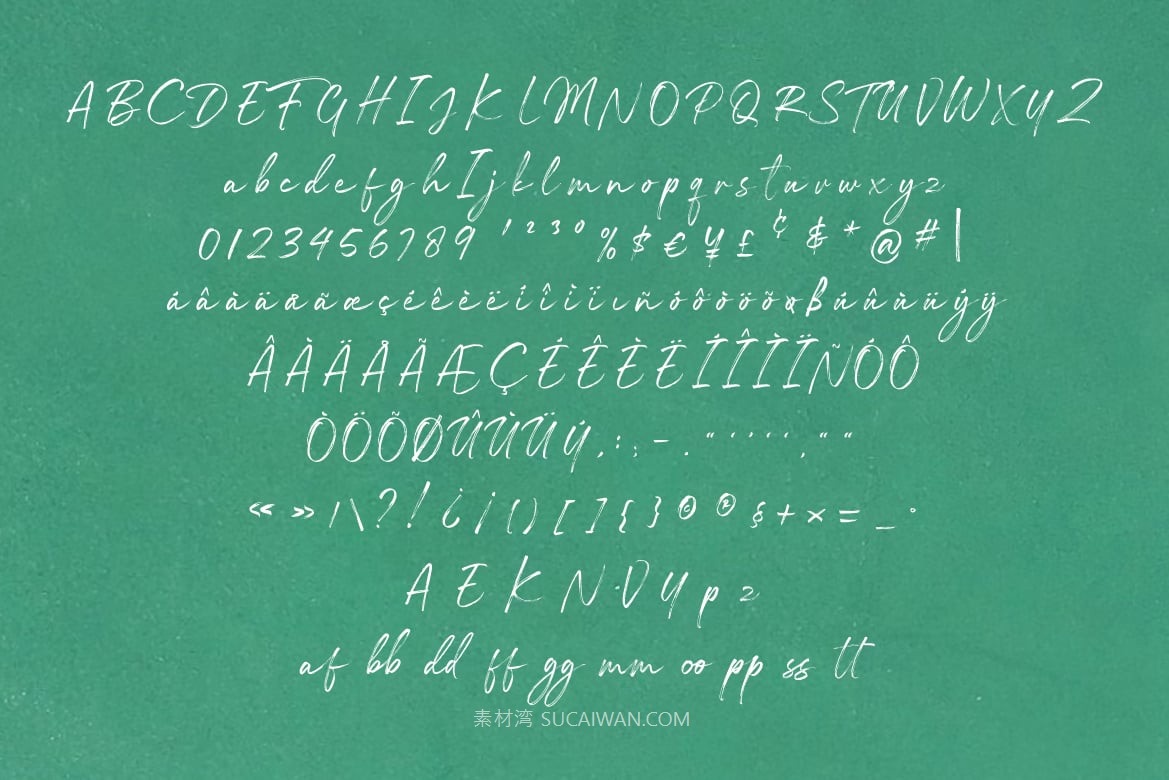 A B C D E F G H I J K L M N O P Q R S T U V W X Y Z
a b c d e f g h I j k l m n o p q r s t u v w x y z
0 1 2 3 4 5 6 7 8 9 ¹ ² ³ ⁰ % $ € ¥ £ ¢ & * @ # |
á â à ä å ã æ ç é ê è ë í î ì ï ı ñ ó ô ò ö õ ø ß ú û ù ü ý ÿ
Â À Ä Å Ã Æ Ç É Ê È Ë Í Î Ì Ï Ñ Ó Ô
Ò Ö Õ Ø Û Ù Ü Ý , : ; – . “ ‘ ’ ‘ ‘ , “ “
« » / \ ? ! ¿ ¡ ( ) [ ] { } © ® § + × = _ °
A E K N · V Y p z
af bb dd ff gg mm oo pp ss tt
素材湾 SUCAIWAN.COM